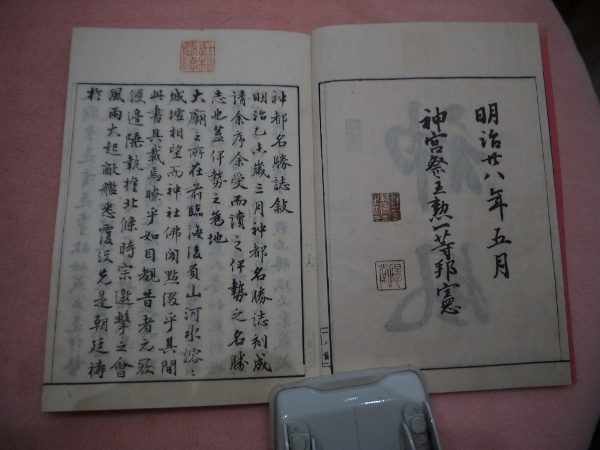 明治廿八年五月
神宮祭主勲一等邦憲
神都名勝誌敍
明治乙未歳三月神都名勝誌刻成
請余序余受而讀之伊勢之名勝
志也蓋伊勢之為地
大廟之所在前臨海後負山河水溶々
城墟相望而神社佛閣點綴乎其間
此書具載焉瞭乎如目覩昔者元寇
渡邊陲執権北條時宗邀撃之會
風雨大起敵艦悉覆没先是朝廷祷
於